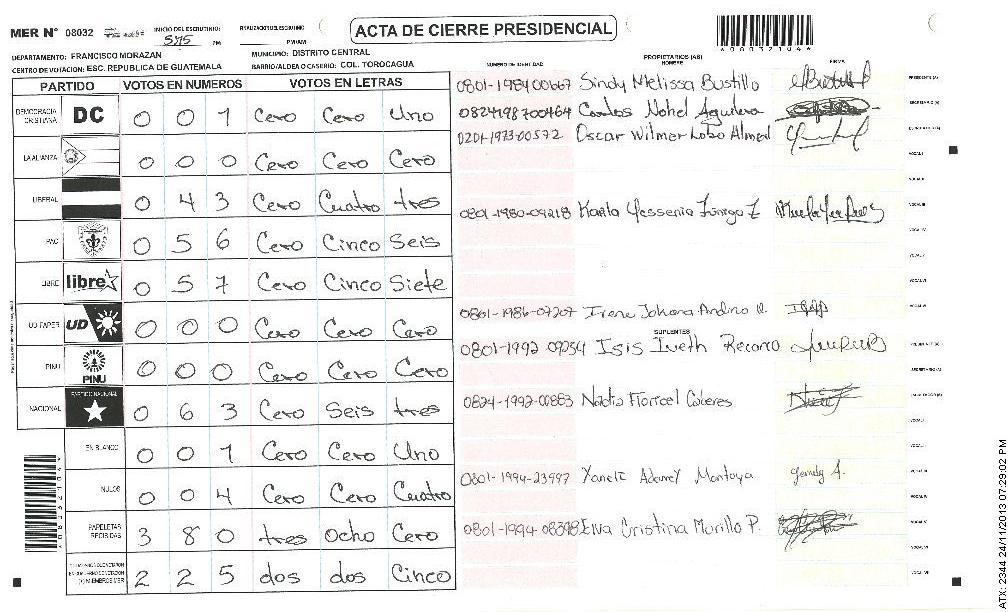 MER N° 08032
INICIO DEL ESCRUTINIO: 5:15 PM
ACTA DE CIERRE PRESIDENCIAL
DEPARTAMENTO: FRANCISCO MORAZAN
MUNICIPIO: DISTRITO CENTRAL
CENTRO DE VOTACION: ESC. REPUBLICA DE GUATEMALA
BARRIO/ALDEA O CASERIO: COL. TOROCAGUA
PARTIDO VOTOS EN NUMEROS VOTOS EN LETRAS
DEMOCRACIA CRISTIANA DC 0 0 1 Cero Cero Uno
LA ALIANZA 0 0 0 Cero Cero Cero
LIBERAL 0 4 3 Cero Cuatro tres
PAC 0 5 6 Cero Cinco Seis
LIBRE libre 0 5 7 Cero Cinco Siete
UD FAPER UD 0 0 0 Cero Cero Cero
PINU PINU 0 0 0 Cero Cero Cero
NACIONAL PARTIDO NACIONAL 0 6 3 Cero Seis tres
EN BLANCO 0 0 1 Cero Cero Uno
NULOS 0 0 4 Cero Cero Cuatro
PAPELETAS RECIBIDAS 3 8 0 tres Ocho Cero
2 2 5 dos dos Cinco
NUMERO DE IDENTIDAD
PROPIETARIOS (AS)
NOMBRE
FIRMA
0801-1984 00667 Sindy Melissa Bustillo
0824198700464 Carlos Nohel Aguilera
0201-1973-00572 Oscar Wilmer Lobo
0801-1980-09218 Karla Yessenia Zuniga Z
0801-1986-07207 Irene Johana Andino
SUPLENTES
0801-1992 09254 Isis Iveth Recarco
0824-1992-00883 Nadia Floricel
0801-1994-23997 Adoney Montoya
0801-1994 08398 Elva Cristina Murillo P.
ATX: 2344 24/11/2013 07:29:02 PM